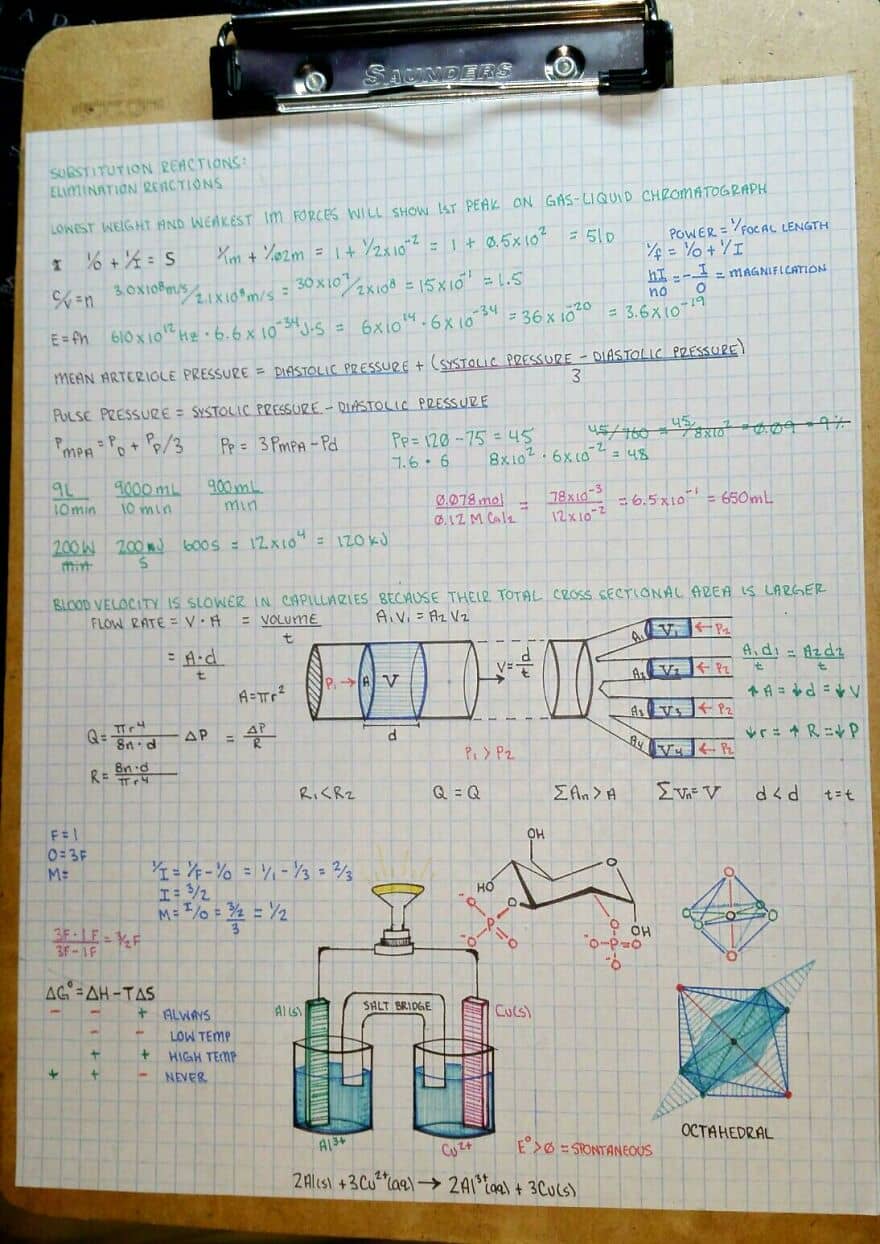 SAUNDERS
SUBSTITUTION REACTIONS:
ELIMINATION REACTIONS
LOWEST WEIGHT AND WEAKEST IM FORCES WILL SHOW 1ST PEAK ON GAS-LIQUID CHROMATOGRAPH
I 1/O + 1/I = S 1/1m + 1/.02m = 1 + 1/2x10⁻² = 1 + Ø.5x10² = 51D
POWER = 1/FOCAL LENGTH
1/f = 1/O + 1/I
C/V = n 3.0x10⁸m/s/2.1x10⁸m/s = 30x10⁷/2x10⁸ = 15x10⁻¹ = 1.5
hI/hO = -I/O = MAGNIFICATION
E=fh 610x10¹²Hz · 6.6x10⁻³⁴J·S = 6x10¹⁴ · 6x10⁻³⁴ = 36x10⁻²⁰ = 3.6x10⁻¹⁹
MEAN ARTERIOLE PRESSURE = DIASTOLIC PRESSURE + (SYSTOLIC PRESSURE - DIASTOLIC PRESSURE)
3
PULSE PRESSURE = SYSTOLIC PRESSURE - DIASTOLIC PRESSURE
PMPA = PD + PP/3 PP = 3PMPA - Pd PP = 120 - 75 = 45 45/760 = 45/8x10² = Ø.09 = 9%
7.6 · 6 8x10² · 6x10⁻² = 48
9L 9000mL 900mL
10min 10min min
Ø.078mol = 78x10⁻³ = 6.5x10⁻¹ = 650mL
200W 200 J 600s = 12x10⁴ = 120kJ
min S
BLOOD VELOCITY IS SLOWER IN CAPILLARIES BECAUSE THEIR TOTAL CROSS SECTIONAL AREA IS LARGER
FLOW RATE = V · A = VOLUME A₁V₁ = A₂V₂
t
= A·d
t
A=πr²
P₁ → A V
d
V = d
t
A₁ V₁ ← P₂
A₂ V₂ ← P₂
A₃ V₃ ← P₂
A₄ V₄ ← P₂
A₁d₁ = A₂d₂
t t
↑A = ↓d = ↓V
↓r = ↑R = ↓P
Q = πr⁴ ΔP = ΔP
8n·d R
P₁ > P₂
R = 8n·d
πr⁴
R₁<R₂ Q = Q ΣAn > A ΣVn = V d < d t=t
F=1
O=3F
M=
1/I = 1/F - 1/O = 1/1 - 1/3 = 2/3
I = 3/2
M = I/O = 3/2 = 1/2
3
3F·1F = 3/2F
3F-1F
OH
O
HO
O
O⁻
P
O⁻
O
OH
O
⁻O-P=O
⁻O
O
O
O
O
O
O
ΔG° = ΔH - TΔS
- - + ALWAYS
- - LOW TEMP
+ + HIGH TEMP
+ + - NEVER
Al(s)
SALT BRIDGE
Cu(s)
Al³⁺
Cu²⁺
E°>Ø = SPONTANEOUS
OCTAHEDRAL
2Al(s) + 3Cu²⁺(aq) → 2Al³⁺(aq) + 3Cu(s)